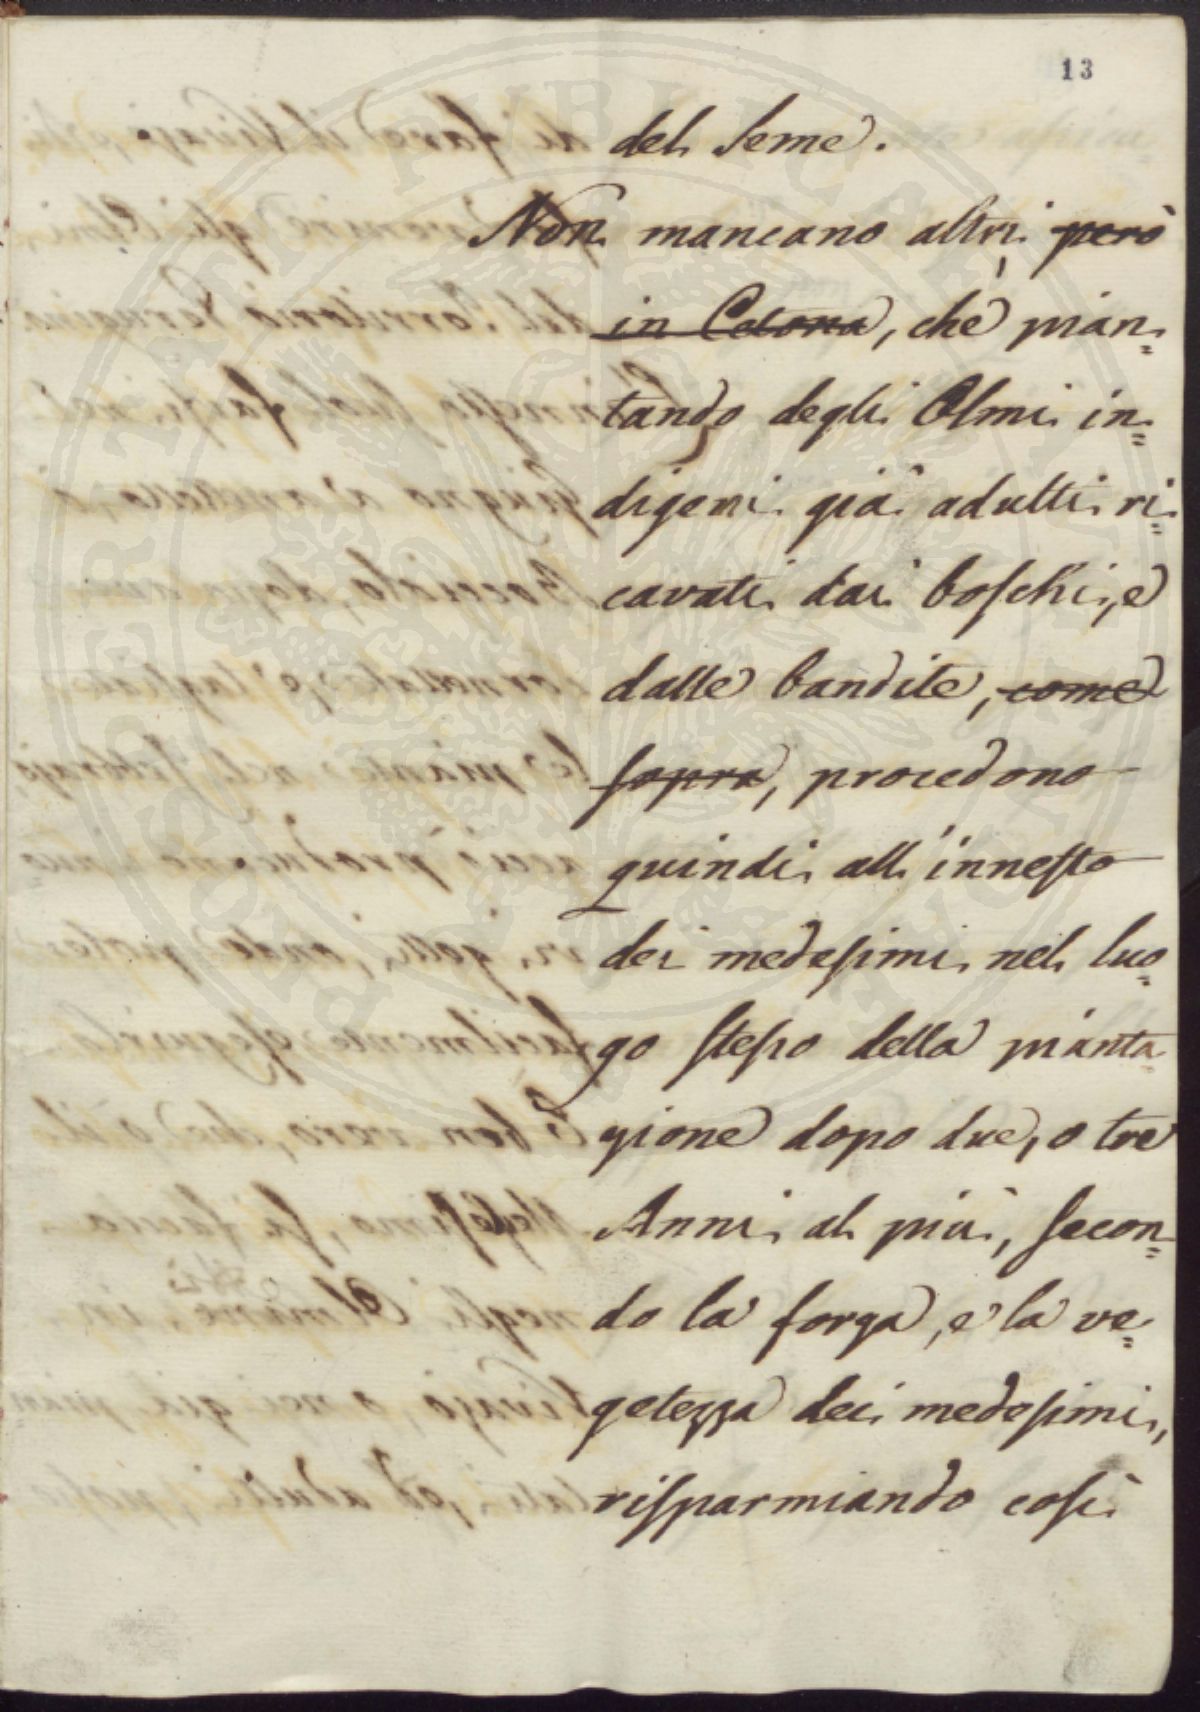 13
del Seme.
Non mancano altri ~~però~~
~~in Cetona~~, che pian=
tando degli Olmi in=
digeni già adulti ri=
cavati dai boschi, e
dalle bandite, ~~come~~
~~sopra~~, procedono
quindi all'innesto
dei medesimi nel luo=
go stesso della pianta=
gione dopo due, o tre
Anni al più, secon=
do la forza, e la ve=
getezza dei medesimi,
risparmiando così